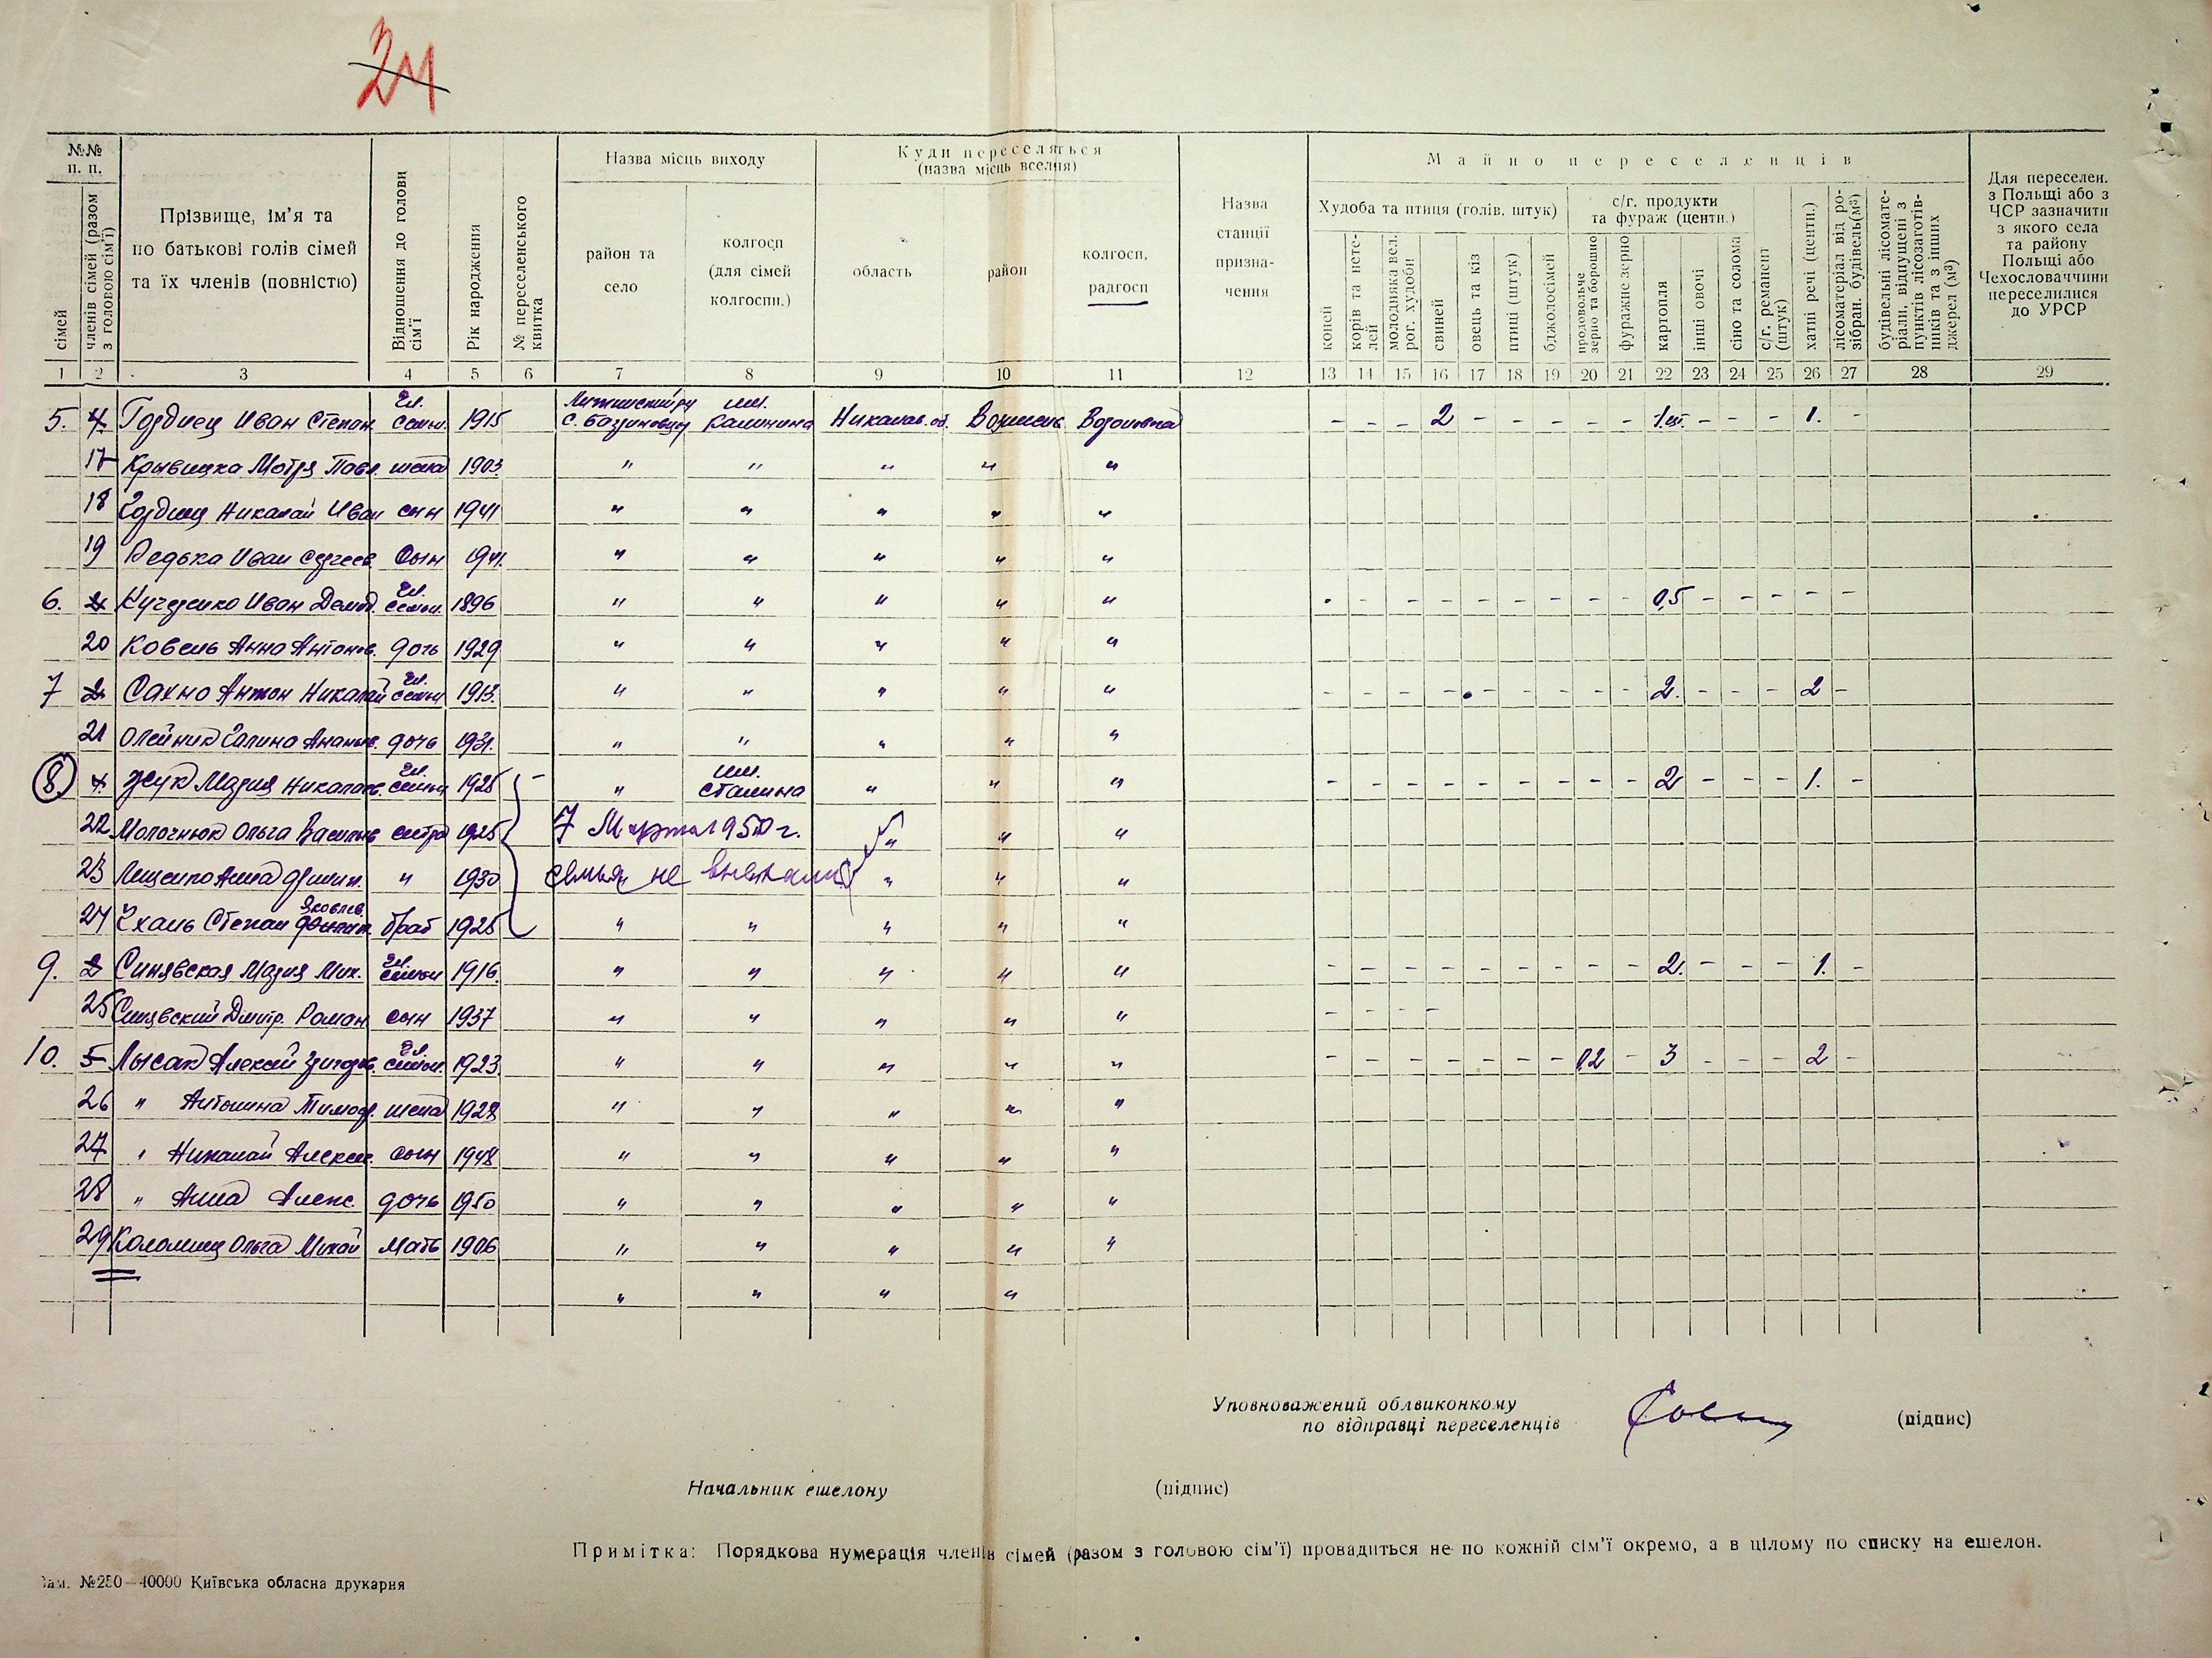 24
№№ п. п.
сімей
членів сімей (разом з головою сім'ї)
Прізвище, ім'я та
по батькові голів сімей
та їх членів (повністю)
Відношення до голови сім'ї
Рік народження
№ переселенського квитка
Назва місць виходу
район та село
колгосп (для сімей колгоспн.)
Куди переселяться
(назва місць вселня)
область
район
колгосп, радгосп
Назва станції призна-чення
Майно переселенців
Худоба та птиця (голів, штук)
коней
корів та нете-лей
молодняка вел. рог. худоби
свиней
овець та кіз
птиці (штук)
бджолосімей
с/г. продукти та фураж (центн.)
продовольче зерно та борошно
фуражне зерно
картопля
інші овочі
сіно та солома
с/г. реманент (штук)
хатні речі (центн.)
лісоматеріал від ро-зібран. будівель (м³)
будівельні лісомате-ріали, відпущені з пунктів лісозаготів-ників та з інших джерел (м³)
Для переселен. з Польщі або з ЧСР зазначити з якого села та району Польщі або Чехословаччини переселилися до УРСР
1 2 3 4 5 6 7 8 9 10 11 12 13 14 15 16 17 18 19 20 21 22 23 24 25 26 27 28 29
5. 4 Иван Степан. Гл. семьи 1915 им. Калинина Николаев. об. - - - 2 - - - - - 1 - - - 1. -
17 Мотря Павл. жена 1903 " " " " "
18 Николай Иван сын 1941 " " " " "
19 Редька Иван Сергеев. сын 1941. " " " " "
6. 2 Кучеренко Иван Демид. Гл. семьи. 1896 " " " " " - - - - - - - - - 0,5 - - - - -
20 Ковель Анна Антонов. дочь 1929 " " " " "
7 2 Сахно Антон Николай Гл. семьи 1913. " " " " " - - - - - - - - - 2. - - - 2 -
21 Олейник Галина Ананьев. дочь 1931. " " " " "
8. 4. Жук Мария Николаев. Гл. семьи 1925 - " им. Сталина " " " - - - - - - - - - 2 - - - 1. -
22 Молочнюк Ольга Василье сестра 1925 7 Марта 1950 г. " " "
23 Анна Филип. " 1930 семья не " " "
24 Степан Яковлев. брат 1925 " " " " "
9. 2 Синявская Мария Мих. Гл. семьи 1916. " " " " " - - - - - - - - - 2. - - - 1. -
25 Синявский Дмитр. Роман сын 1937 " " " " " - - - -
10. 5 Лысак Алексей Григоров. Гл. семьи. 1923. " " " " " - - - - - - - 0,2 - 3 - - - 2 -
26 " Антонина Тимоф. жена 1928 " " " " "
27 " Николай Алексее. сын 1948 " " " " "
28 " Анна Алекс. дочь 1950 " " " " "
29 Коломиец Ольга Михай мать 1906 " " " " "
" " " "
Уповноважений облвиконкому
по відправці переселенців (підпис)
Начальник ешелону (підпис)
Примітка: Порядкова нумерація членів сімей (разом з головою сім'ї) провадиться не по кожній сім'ї окремо, а в цілому по списку на ешелон.
Зам. №250—10000 Київська обласна друкарня